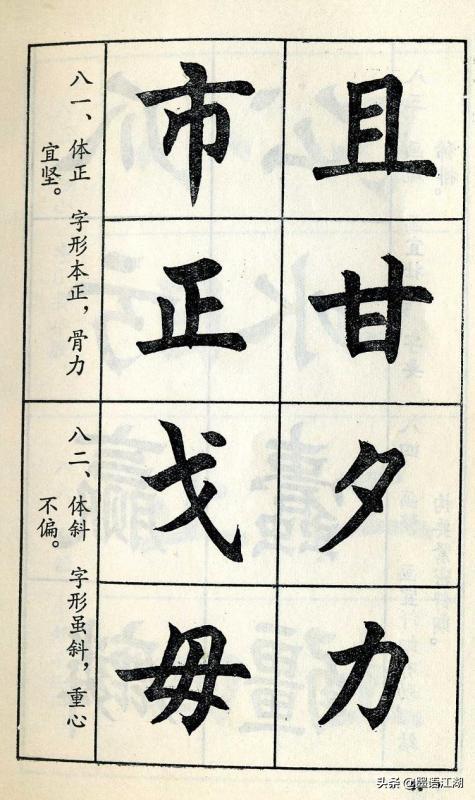 且甘
市正
八一、体正 字形本正，骨力
宜坚。
夕力
戈毋
八二、体斜 字形虽斜，重心
不偏。
头条 @墨语江湖